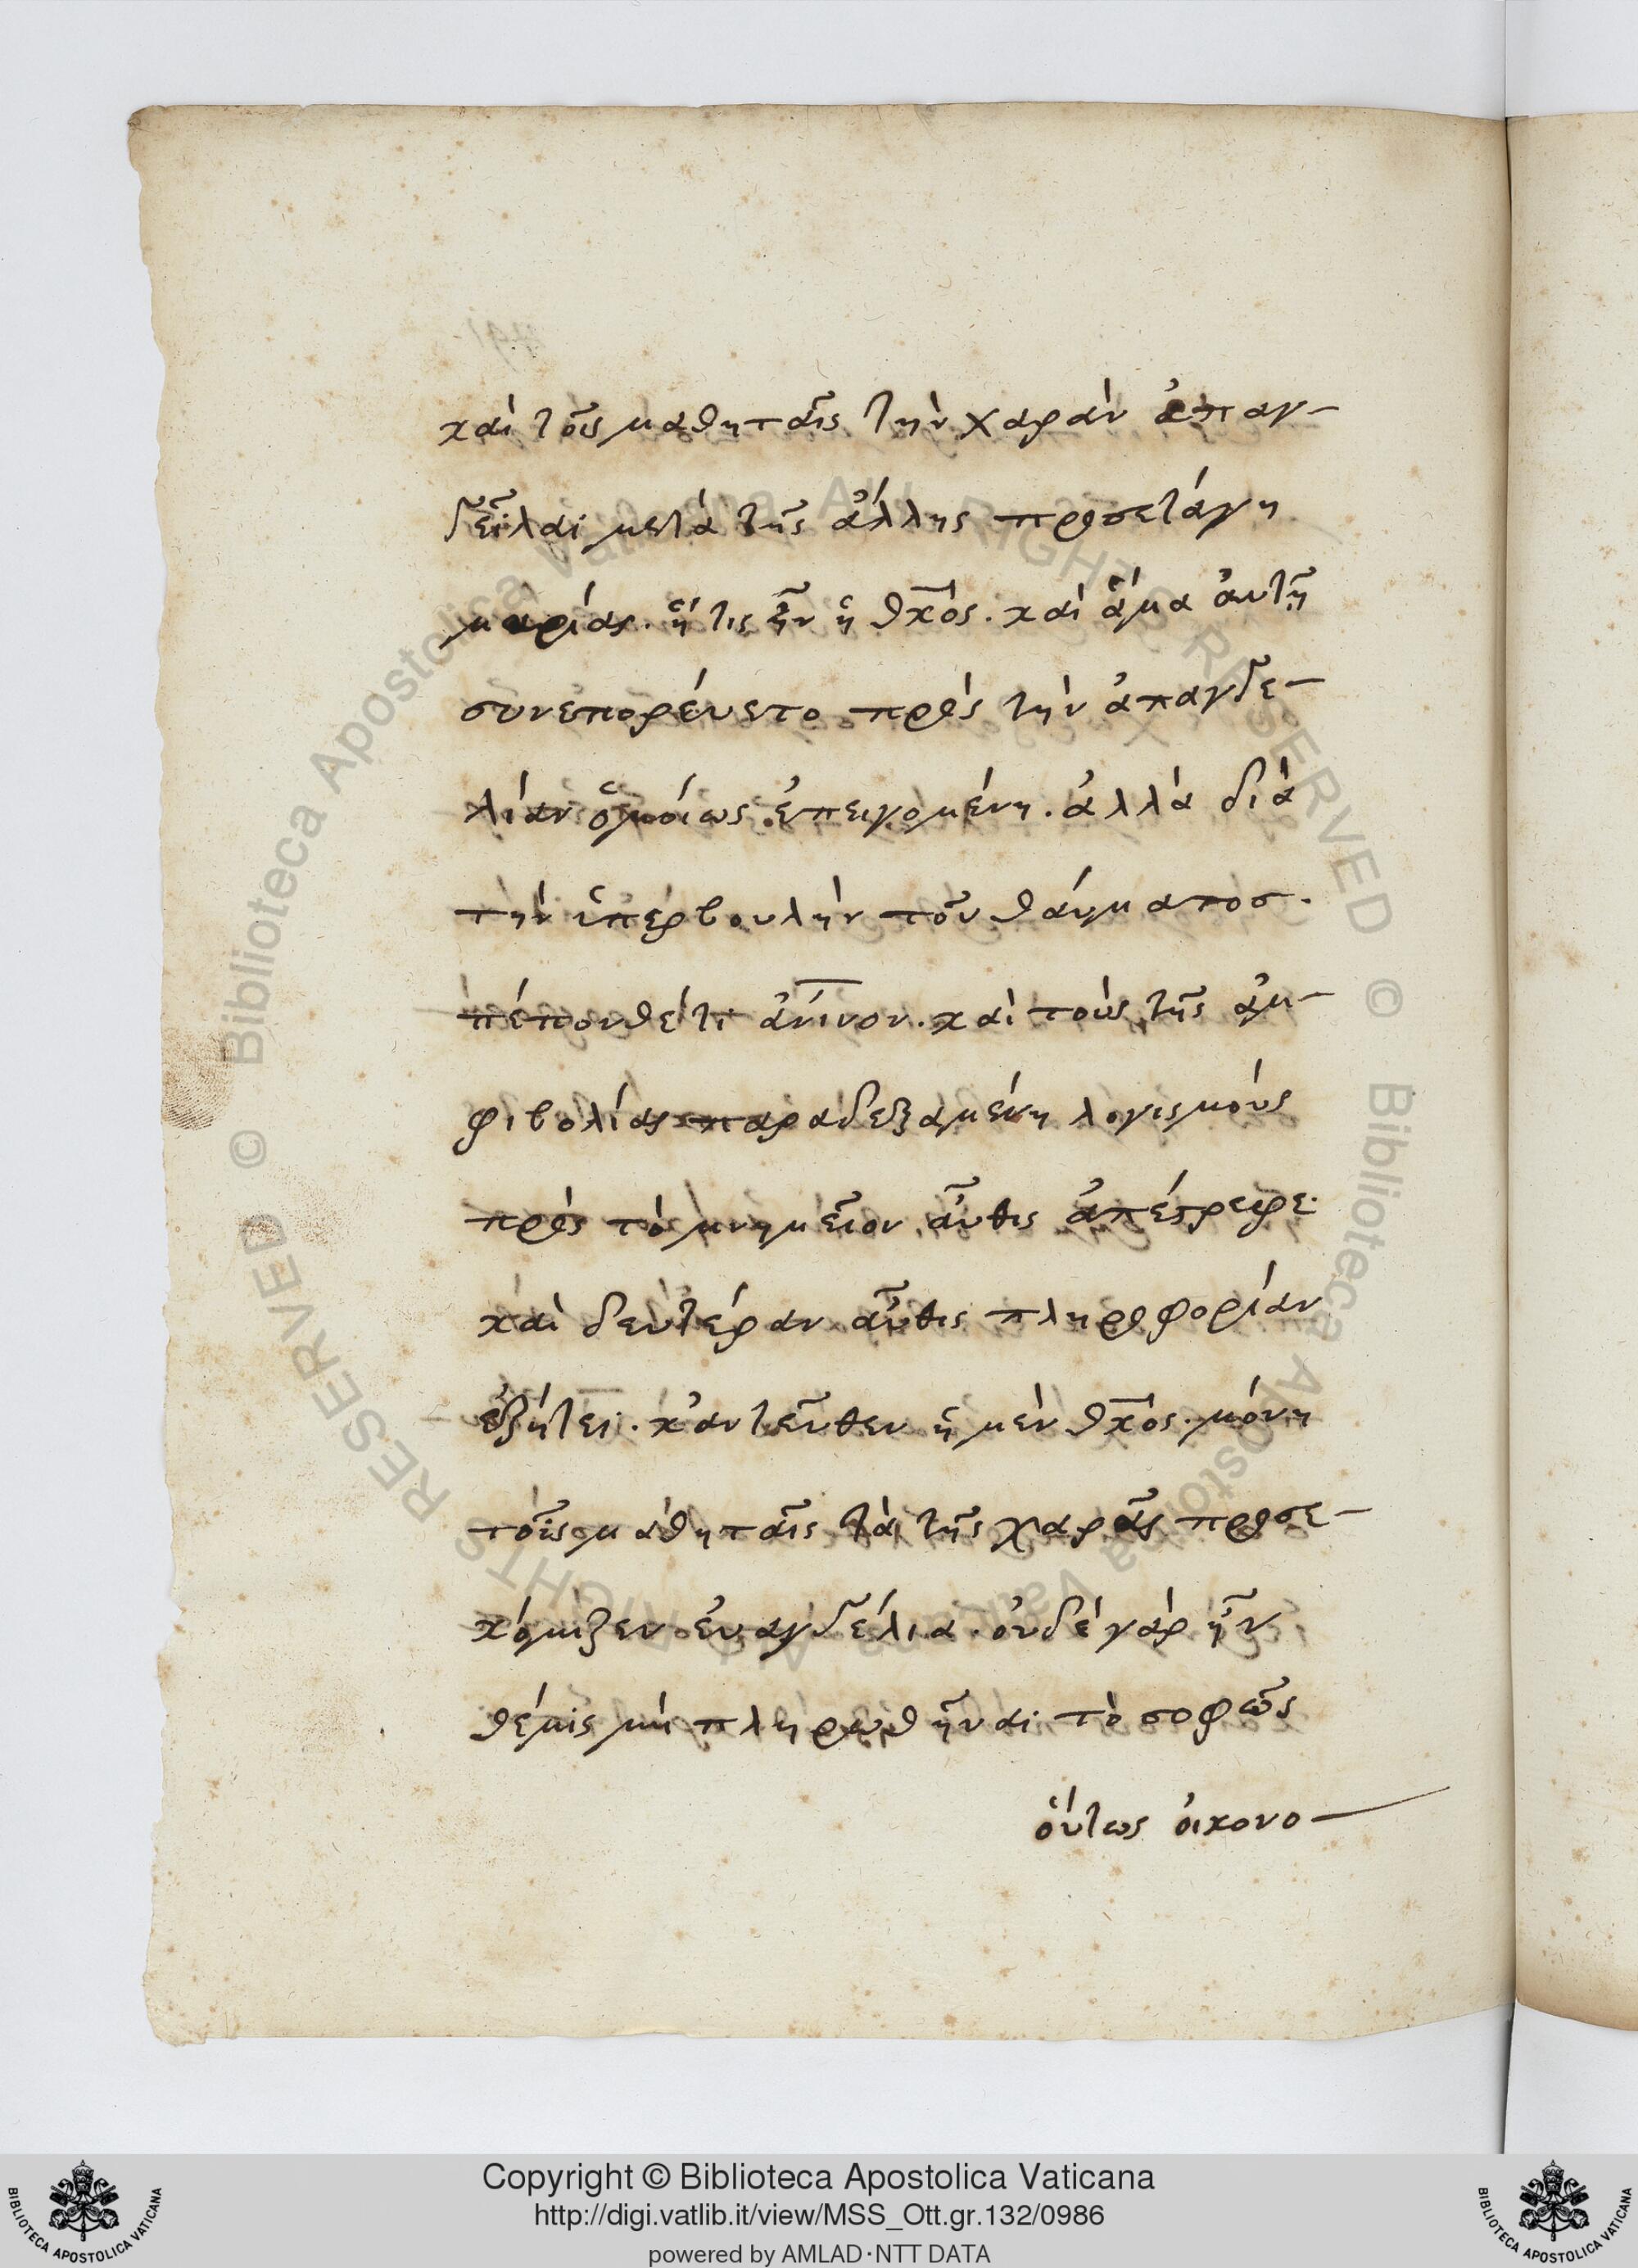 καὶ τοῖς μαθηταῖς τὴν χαρὰν ἀπαγ-
γεῖλαι μετὰ τῆς ἄλλης προσετάγη
μαρίας. ἥτις ἦν ἡ θκ̅ὸς. καὶ ἅμα ἀυτῇ
συνεπορέυετο πρὸς τὴν ἀπαγγε-
λίαν ὁμοίως ἐπειγομένη. ἀλλὰ διὰ
τὴν ὑπερβουλὴν τοῦ θάυματοσ.
πέπονθέ τι ἀν̅ίνον. καὶ τοὺς τῆς ἀμ-
φιβολίας παραδεξαμένη λογισμούς
πρὸς τὸ μνημεῖον ἆυθις ἀπέστρεφε.
καὶ δευτέραν ἆυθις πληροφορίαν
ἐζήτει. κἀντεῦθεν ἡ μὲν θκ̅ὸς. μόνη
τοῖς μαθηταῖς τὰ τῆς χαρᾶς προσε-
κόμιζεν ἐυαγγέλια. ὀυδὲ γὰρ ἦν
θέμις μὴ πληρωθῆναι τὸ σοφῶς
ὅυτως ὀικονο-
Copyright © Biblioteca Apostolica Vaticana
http://digi.vatlib.it/view/MSS_Ott.gr.132/0986
powered by AMLAD·NTT DATA
BIBLIOTECA APOSTOLICA VATICANA
BIBLIOTECA APOSTOLICA VATICANA
© Biblioteca Apostolica Vaticana ALL RIGHTS RESERVED © Biblioteca Apostolica Vaticana ALL RIGHTS RESERVED